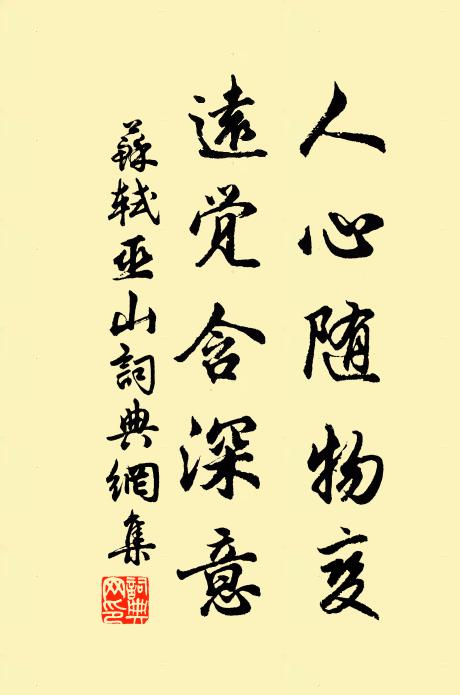 人心随物变
遠覚含深意
蘇軾巫山詞典網集
詞典网印